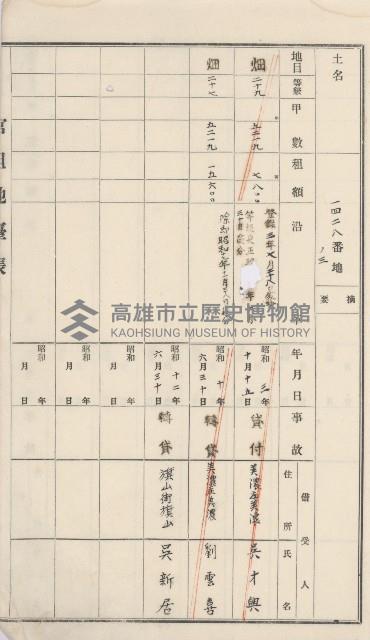 土名
一四二八番地
ノ三
摘要
地目
等級
甲數
租額
沿
年月日
事故
借受人
住所
氏名
畑
二十九
五二一九
七八〇〇
昭和 三年
十月十五日
貸付
美濃庄美濃
吳才興
畑
二十七
五二一九
一五六〇〇
昭和 十年
六月三十日
轉貸
美濃庄美濃
劉雲喜
昭和 十二年
六月三十日
轉貸
旗山街旗山
吳新居
昭和 年
月 日
昭和 年
月 日
昭和 年
月 日
官租地臺帳
高雄市立歷史博物館
KAOHSIUNG MUSEUM OF HISTORY